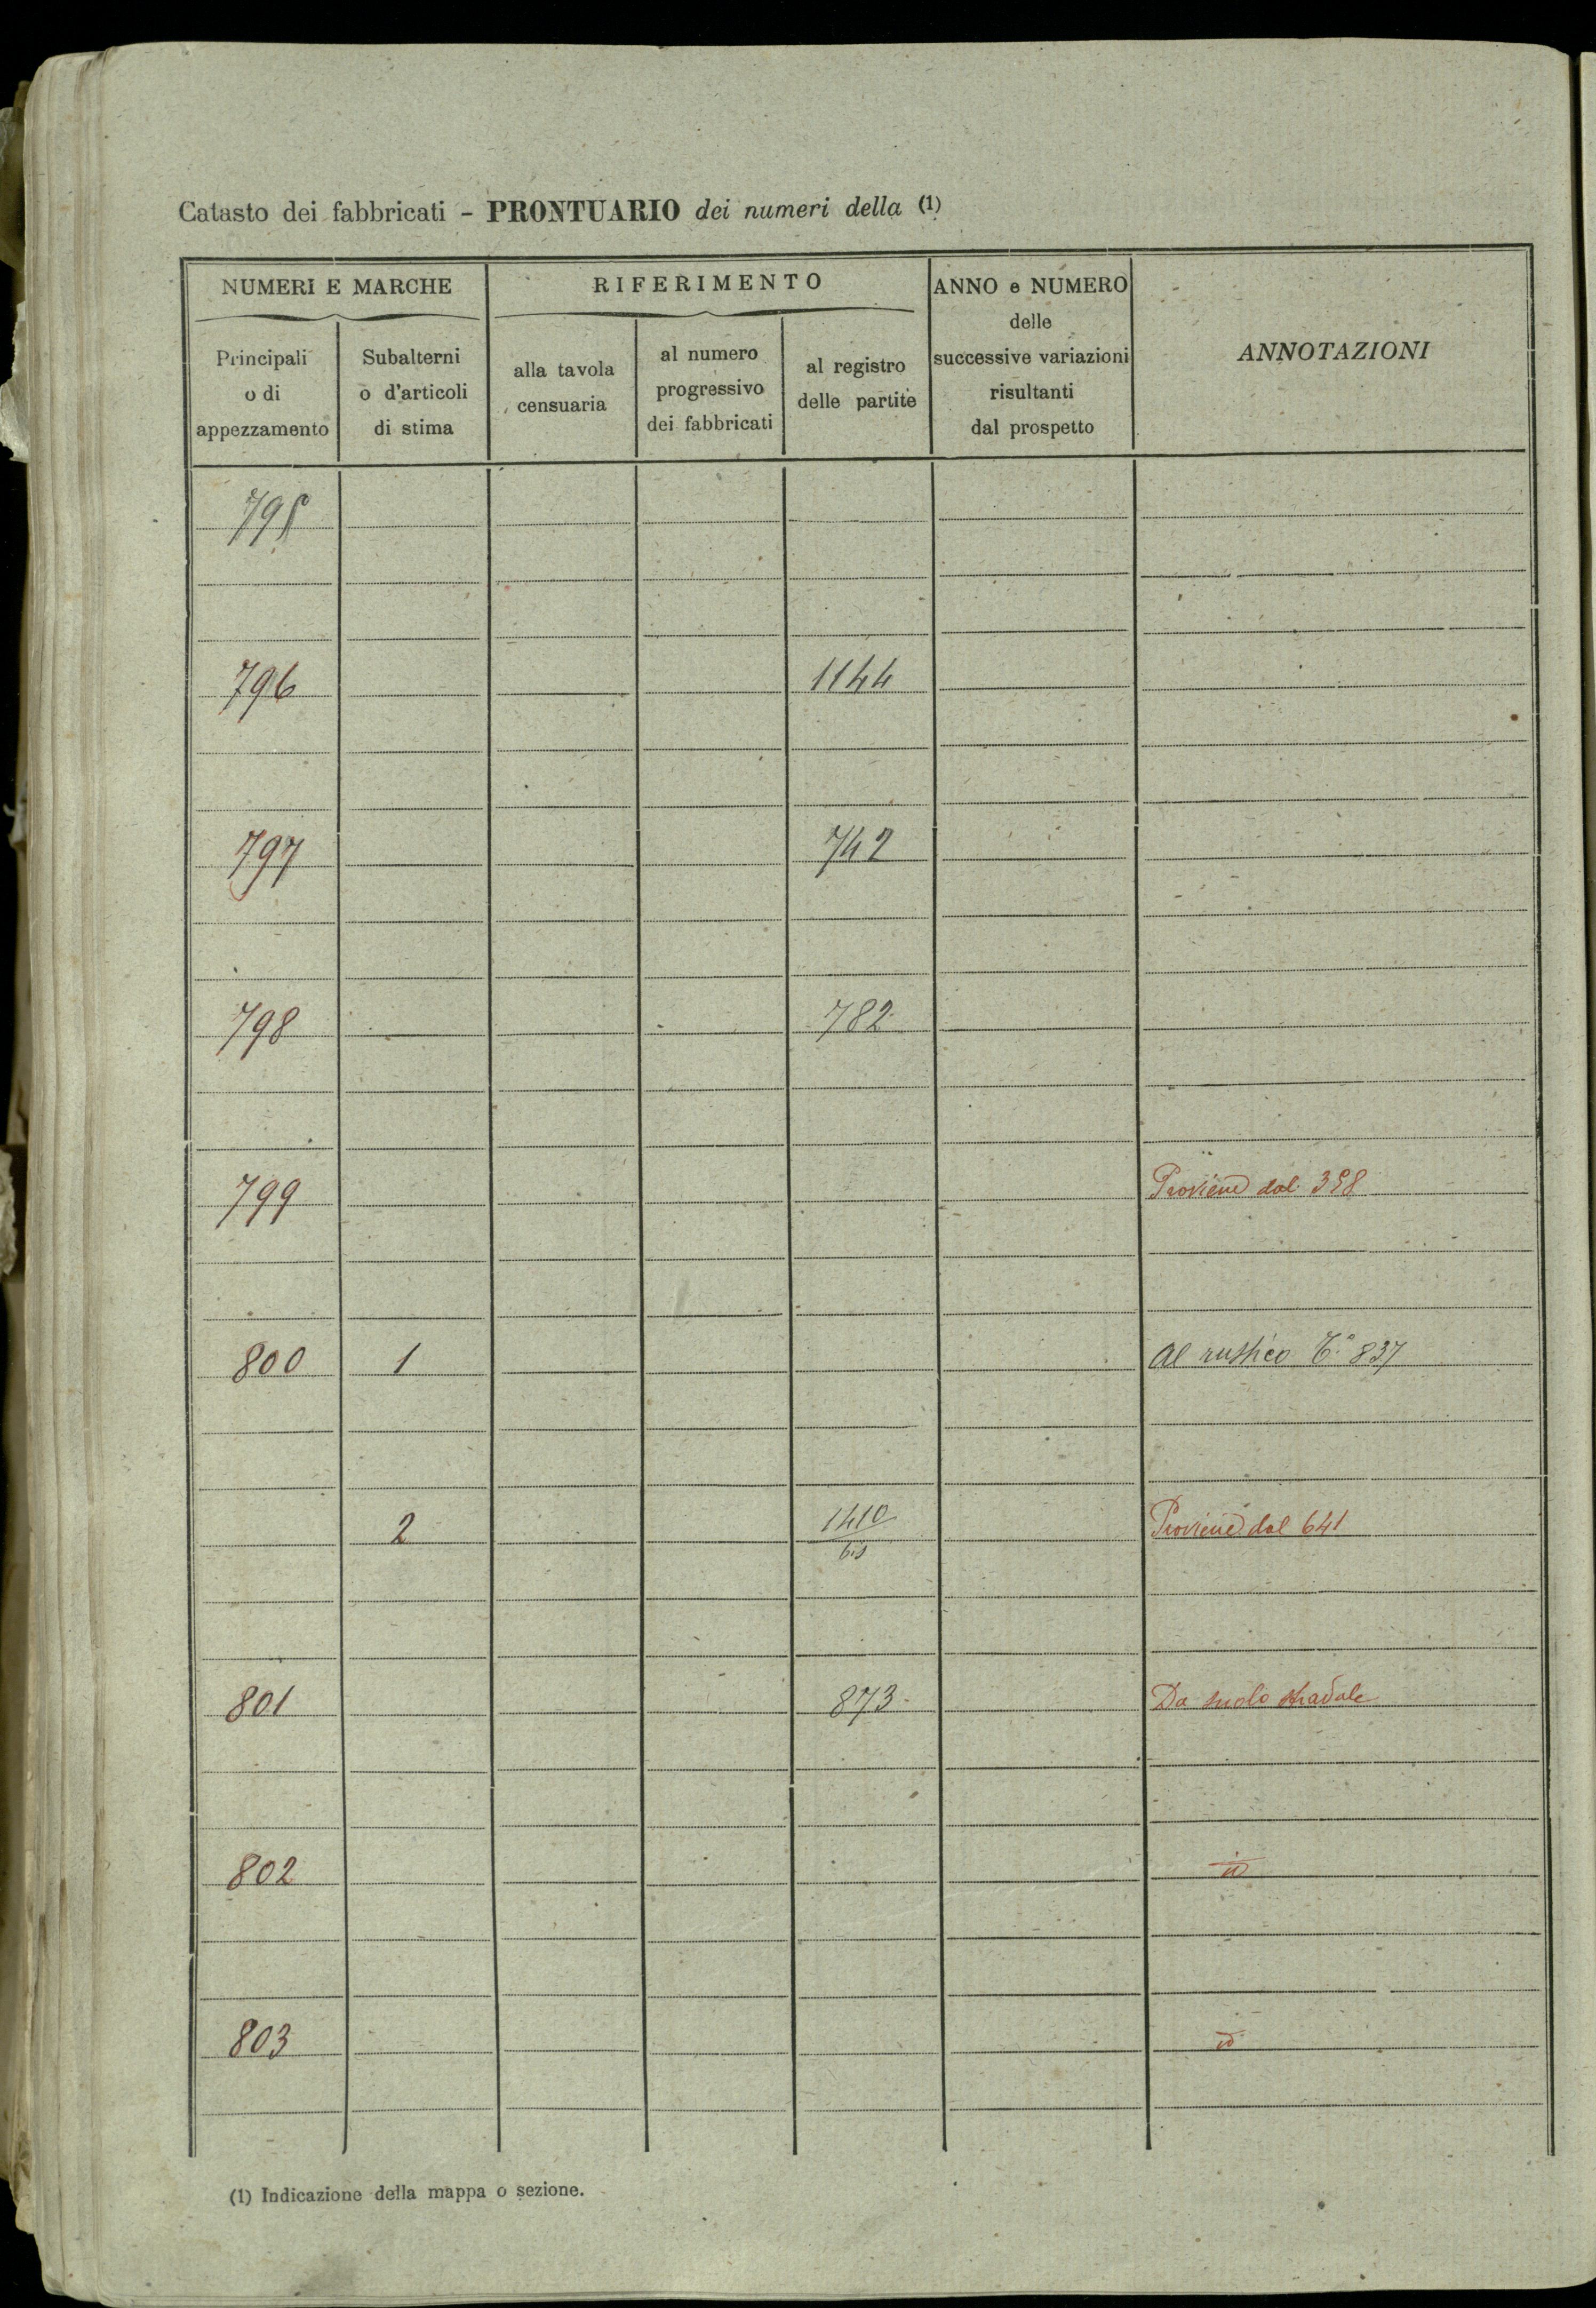 Catasto dei fabbricati - PRONTUARIO dei numeri della (1)
NUMERI E MARCHE
RIFERIMENTO
ANNO e NUMERO
delle
successive variazioni
risultanti
dal prospetto
ANNOTAZIONI
Principali
o di
appezzamento
Subalterni
o d'articoli
di stima
alla tavola
censuaria
al numero
progressivo
dei fabbricati
al registro
delle partite
795
796 1144
797 742
798 782
799 Proviene dal 398
800 1 Al rustico T.° 837
2 1410 Proviene dal 641
bis
801 873 Da suolo stradale
802 id
803 id
(1) Indicazione della mappa o sezione.